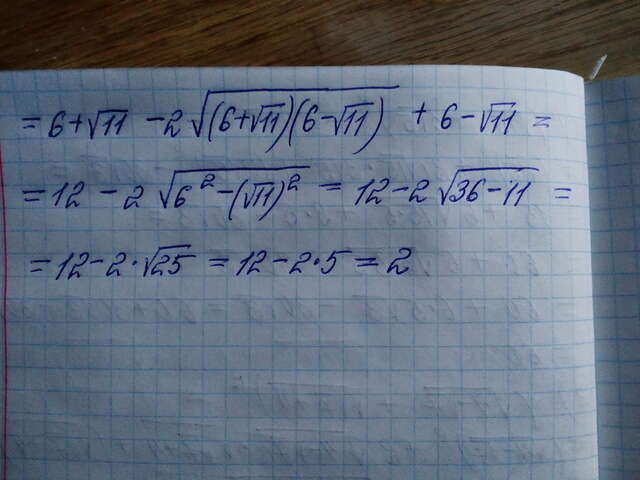 = 6+√11 -2√(6+√11)(6-√11) + 6-√11 =
= 12 - 2 √6²-(√11)² = 12-2√36-11 =
= 12-2·√25 = 12-2·5 = 2